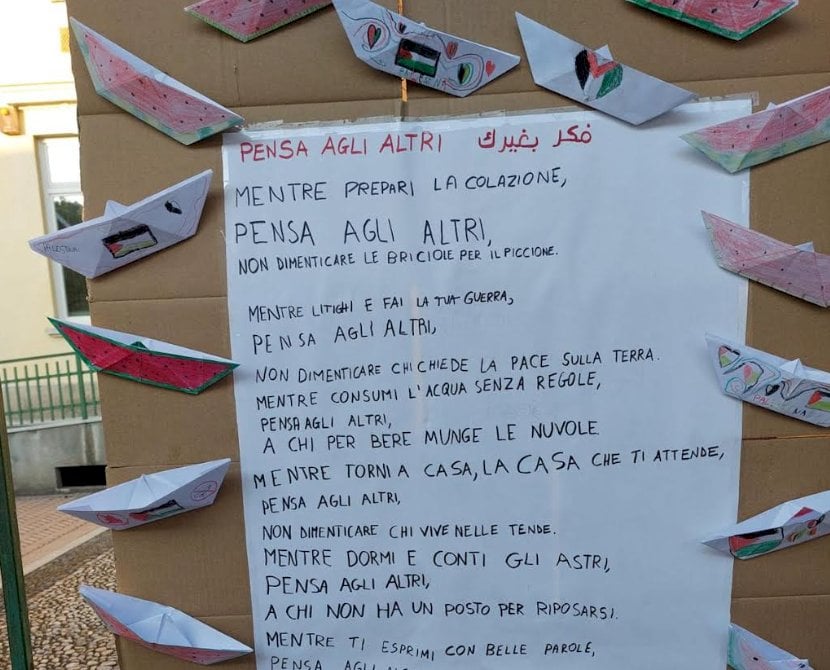 PENSA AGLI ALTRI فكر بغيرك
MENTRE PREPARI LA COLAZIONE,
PENSA AGLI ALTRI,
NON DIMENTICARE LE BRICIOLE PER IL PICCIONE.
MENTRE LITIGHI E FAI LA TUA GUERRA,
PENSA AGLI ALTRI,
NON DIMENTICARE CHI CHIEDE LA PACE SULLA TERRA.
MENTRE CONSUMI L'ACQUA SENZA REGOLE,
PENSA AGLI ALTRI,
A CHI PER BERE MUNGE LE NUVOLE
MENTRE TORNI A CASA, LA CASA CHE TI ATTENDE,
PENSA AGLI ALTRI,
NON DIMENTICARE CHI VIVE NELLE TENDE.
MENTRE DORMI E CONTI GLI ASTRI,
PENSA AGLI ALTRI,
A CHI NON HA UN POSTO PER RIPOSARSI.
MENTRE TI ESPRIMI CON BELLE PAROLE,
PENSA